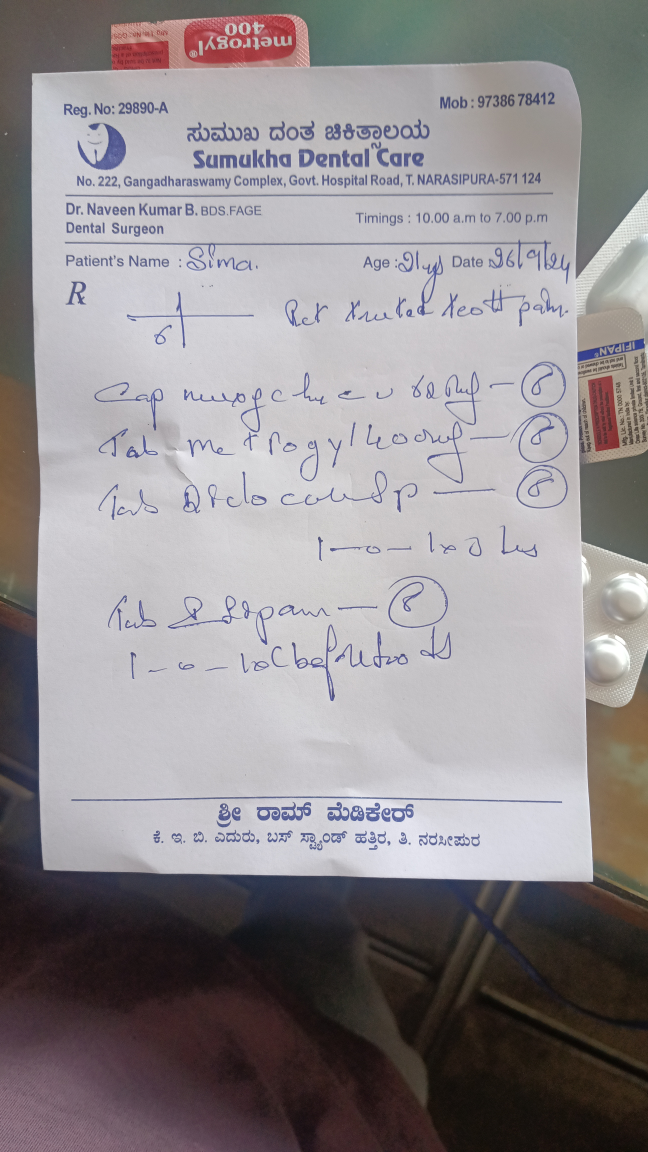 metrogyl®
400
Reg. No: 29890-A
Mob : 97386 78412
ಸುಮುಖ ದಂತ ಚಿಕಿತ್ಸಾಲಯ
Sumukha Dental Care
No. 222, Gangadharaswamy Complex, Govt. Hospital Road, T. NARASIPURA-571 124
Dr. Naveen Kumar B. BDS.FAGE
Dental Surgeon
Timings : 10.00 a.m to 7.00 p.m
Patient's Name : Sima. Age : 21 Date 26/9/24
℞
6
Rct treated teeth pain.
Cap - 8
Tab Metrogyl 400mg - 8
Tab Sp - 8
1-0-1x
Tab - 8
1-0-1x before
IFIPAN®
ಶ್ರೀ ರಾಮ್ ಮೆಡಿಕೇರ್
ಕೆ. ಇ. ಬಿ. ಎದುರು, ಬಸ್ ಸ್ಟ್ಯಾಂಡ್ ಹತ್ತಿರ, ತಿ. ನರಸೀಪುರ